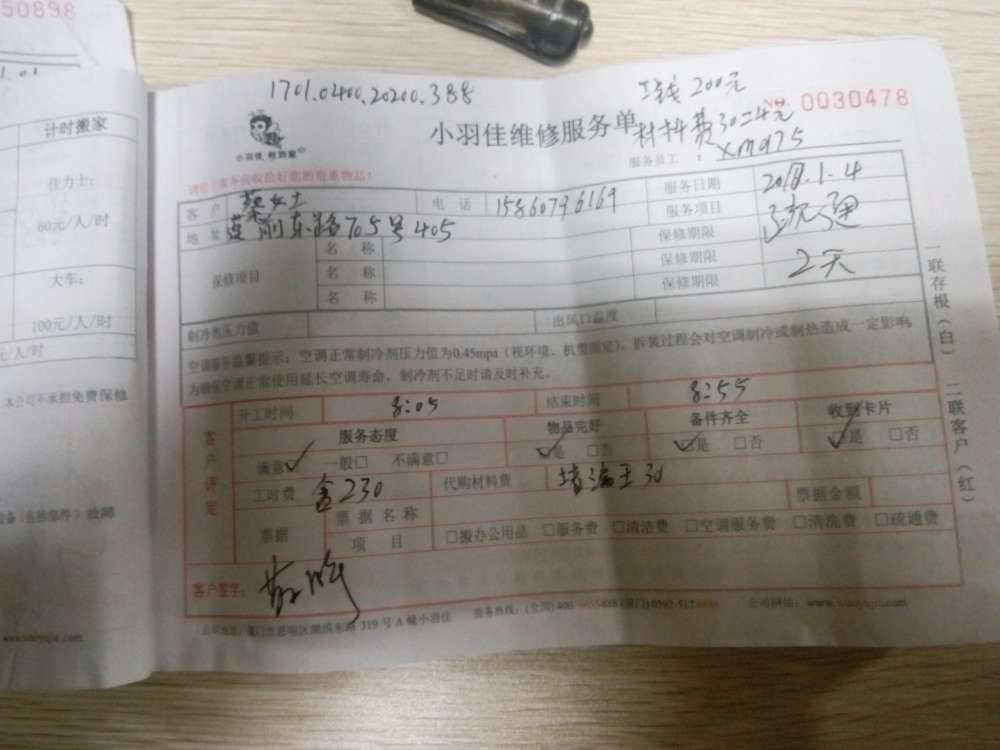 50898
1.01
计时搬家
佳力士:
80元/人/时
大车:
100元/人/时
元/人/时
本公司不承担免费保修
故障
1701.0400.20200.388
工钱 200元
材料费30=4元
№ 0030478
小羽佳 帮到家
小羽佳维修服务单
服务员工 : xm975
客户 蔡女士 电话 15860796169 服务日期 2018.1.4
地址 莲前东路705号405 服务项目 疏通
保修项目 名称 保修期限
名称 保修期限 2天
名称 保修期限
制冷剂压力值 出风口温度
空调服务温馨提示: 空调正常制冷剂压力值为0.45mpa (视环境、机型而定), 拆装过程会对空调制冷或制热造成一定影响,
为确保空调正常使用延长空调寿命, 制冷剂不足时请及时补充。
一联存根(白) 二联客户(红)
客户评定
开工时间 8:05 结束时间 8:55
服务态度 物品完好 备件齐全 收到卡片
满意✓ 一般□ 不满意□ ✓是 □否 ✓是 □否 ✓是 □否
工时费 含230 代购材料费 堵漏王30 票据金额
票据 票据名称
项目 □搬办公用品 □服务费 □清洁费 □空调服务费 □清洗费 □疏通费
客户签字:
公司地址: 厦门市思明区湖滨东路 319 号 A 幢小羽佳 服务热线: (全国) 400- (厦门) 0592-517 公司网址: www.xiaoyujia.com
www.xiaoyujia.com